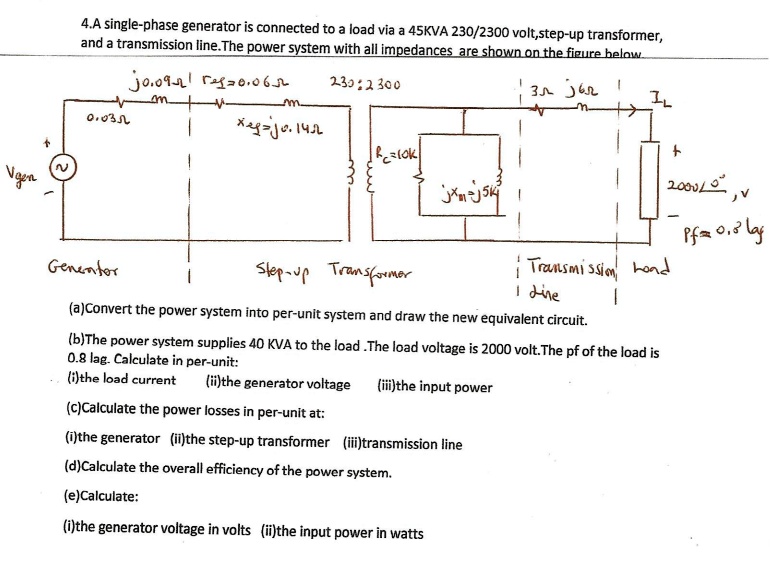 4.A single-phase generator is connected to a load via a 45KVA 230/2300 volt,step-up transformer,
and a transmission line.The power system with all impedances are shown on the figure below
j0.09Ω req=0.06Ω 230:2300 3Ω j6Ω IL
0.03Ω xeq=j0.14Ω
Rc=10K
+ +
Vgen ~ jxm=j5K 2000∠0°, V
- -
Pf=0.8 lag
Generator Step-up Transformer Transmission Load
Line
(a)Convert the power system into per-unit system and draw the new equivalent circuit.
(b)The power system supplies 40 KVA to the load .The load voltage is 2000 volt.The pf of the load is
0.8 lag. Calculate in per-unit:
(i)the load current (ii)the generator voltage (iii)the input power
(c)Calculate the power losses in per-unit at:
(i)the generator (ii)the step-up transformer (iii)transmission line
(d)Calculate the overall efficiency of the power system.
(e)Calculate:
(i)the generator voltage in volts (ii)the input power in watts